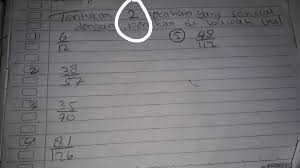 Tentukan 2 pecahan yang senilai
dengan pecahan di bawah ini
1 6/12 5 48/112
2 38/57
3 35/70
4 81/126